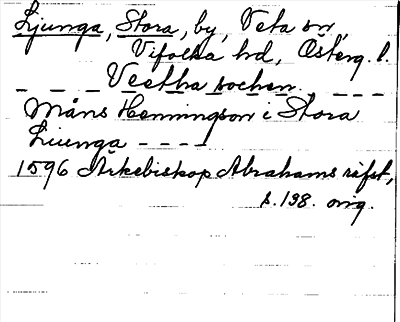 Ljunga, Stora, by, Veta sn,
Vifolka hd, Österg. l.
- - - Veetha sochen. - - -
Måns Henningson i Stora
Liunga - - - -
1596 Arkebiskop Abrahams räfst,
s. 198. orig.